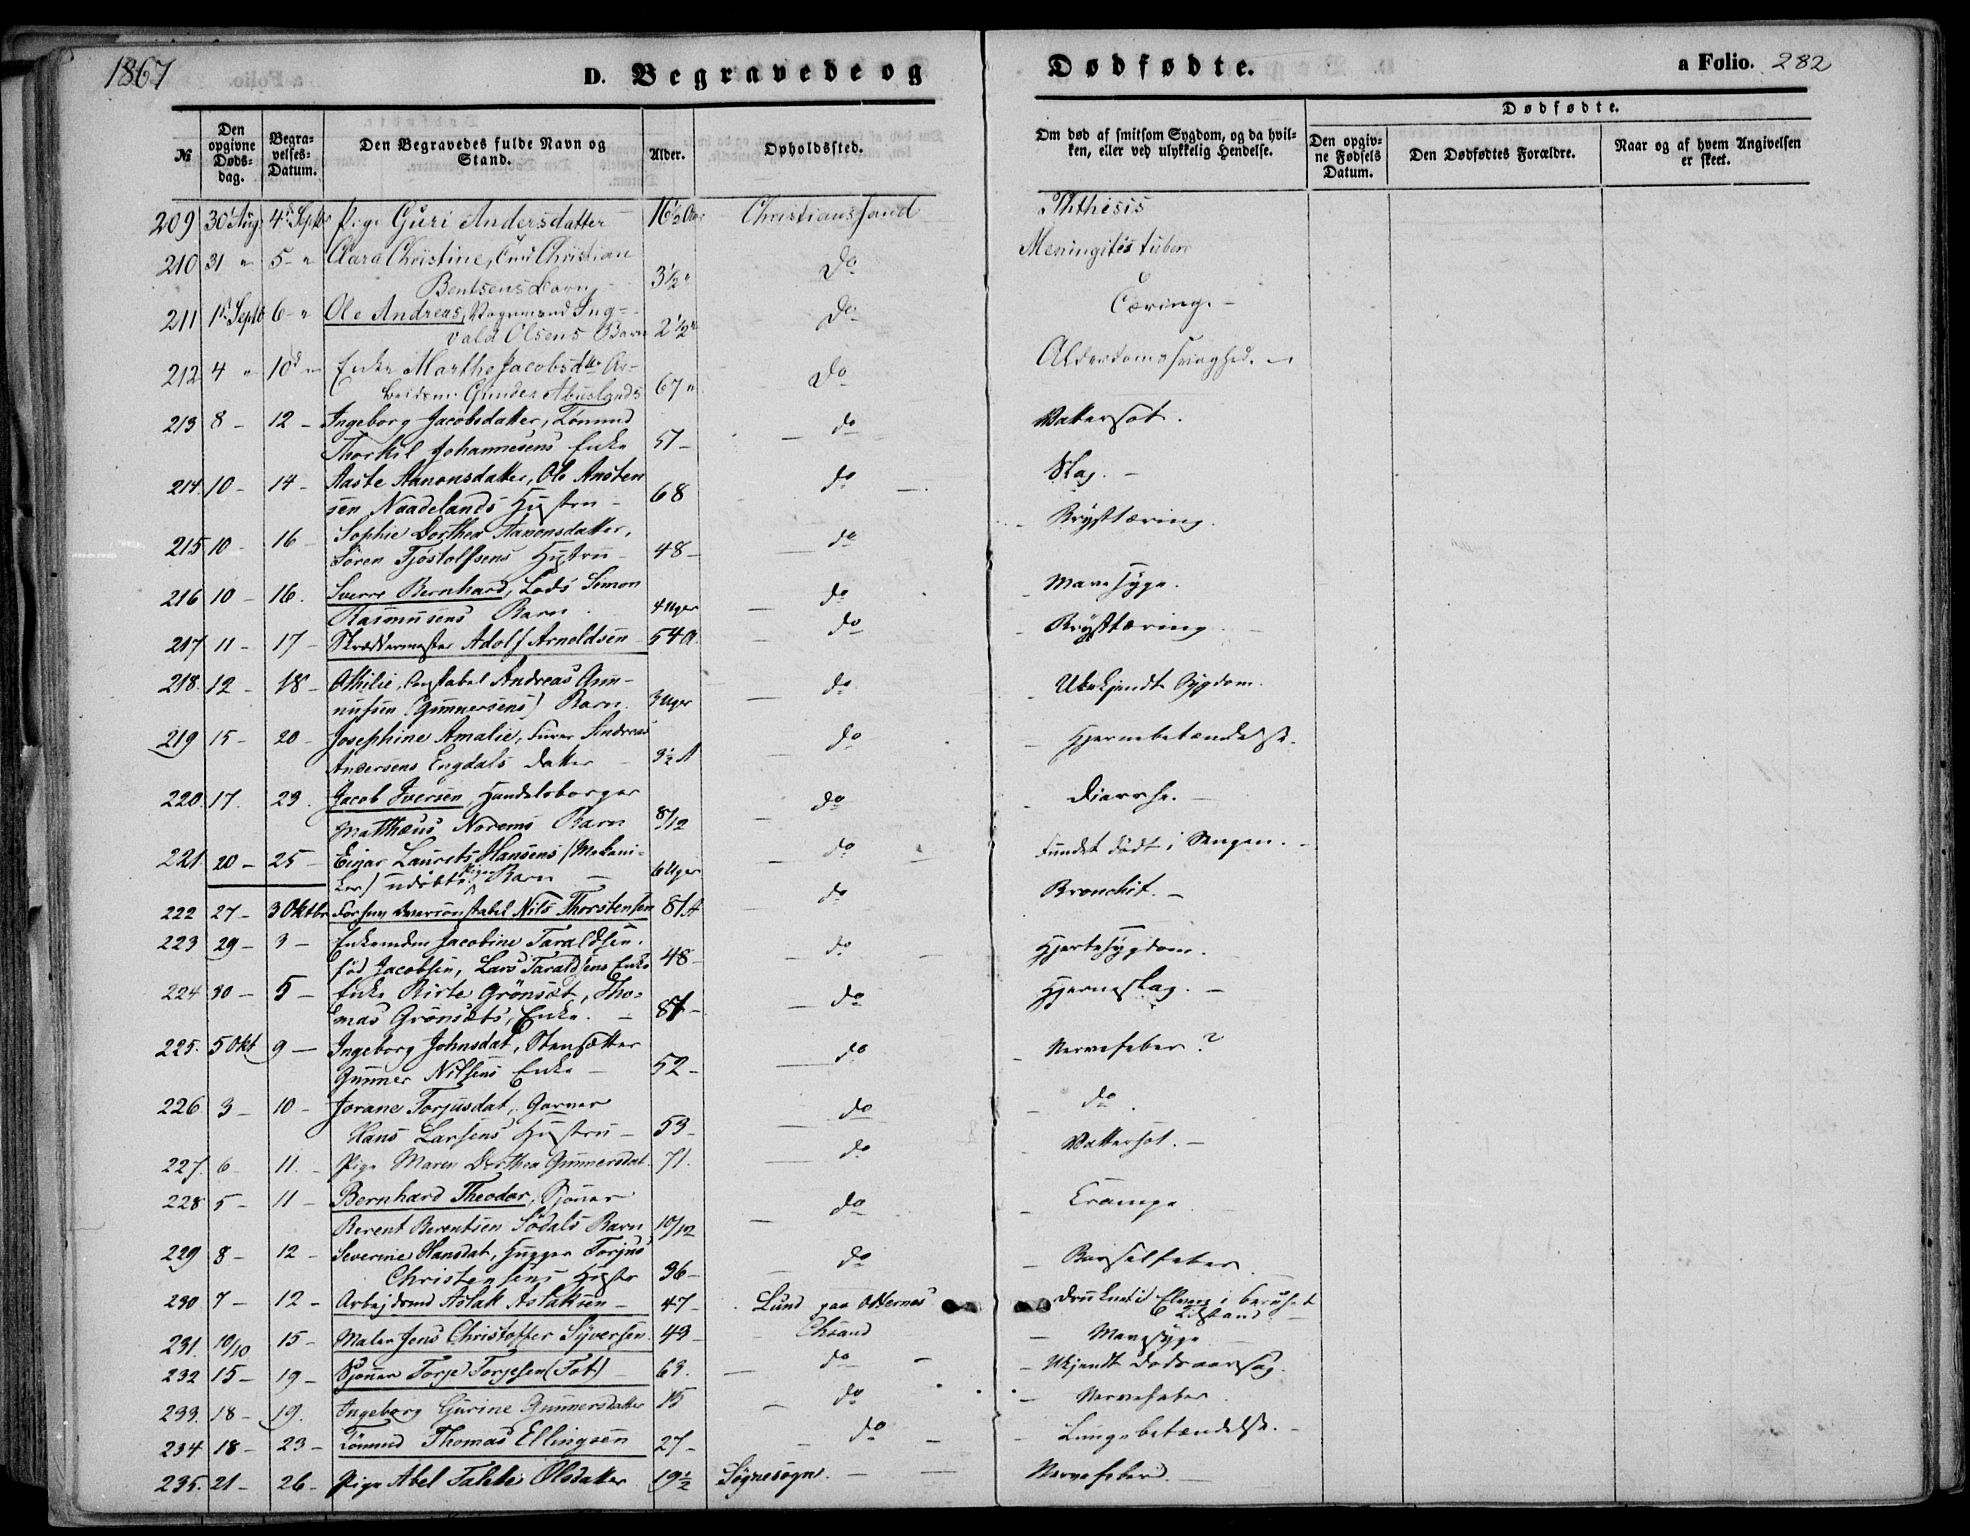 1867
D. Begravede og Dødfødte.
a Folio. 282
№
Den opgivne Døds-dag.
Begra-velses-Datum.
Den Begravedes fulde Navn og Stand.
Alder.
Opholdssted.
Om død af smitsom Sygdom, og da hvil-ken, eller ved ulykkelig Hendelse.
Dødfødte.
Den opgiv-ne Fødsels Datum.
Den Dødfødtes Forældre.
Naar og af hvem Angivelsen er skeet.
209 30 Aug 4d Septbr Pige Guri Andersdatter 16½ Aar Christianssand Phthisis
210 31 " 5 - " Clara Christine, Christian
Bentsens Barn 3½ " Do Meningites tuberc
211 1st Septb 6 - " Ole Andreas, Vognmand Ing-
vald Olsens Barn 2½ " Do Tæring. -
212 4 " 10d " Enke Marthe Jacobsdtr Ar-
beidsm. Gunder Abuslands 67 " Do Alderdomssvaghed. -
213 8 - 12 - Ingeborg Jacobsdatter, Tømmd
Thorkil Johannesens Enke 57 - do Vattersot.
214. 10 - 14 - Aaste Aanonsdatter, Ole Ansten
sen Naadelands Hustru - 68 do Slag. -
215 10 - 16 - Sophie Dorthea Aanonsdatter,
Sören Tjöstolfsens Hustru - 48 - do Brysttæring.
216 10 - 16. Sverre Bernhard, Lods Simon
Rasmusens Barn. 4 Uger do Mavesyge.
217 11 - 17 - Skræddermester Adolf Arnoldsen 54 A. do Brysttæring.
218. 12 - 18 - Othilie, Constabel Andreas Gun-
nusen (Gunnersens) Barn. 3 Uger do Ubekjendt Sygdom.
219 15 - 20 - Josephine Amalie, Furer Andreas
Andersens Engdals Datter - 3½ A do Hjernebetændelse.
220. 17. 23. Jacob Iversen, Handelsborger
Matthæus Norems Barn 8/12 do Diarrhe. -
221. 20 - 25 - Ejnar Laurits Hansens (Mekani-
ker) udøbte Pige Barn - 6 Uger do Fundet dødt i Sengen. -
222 27 - 3 Oktbr Forhen Overconstabel Nils Thorstensen 81 A do Bronchit. -
223 29 - 3 - Enkemdm Jacobine Taraldsen,
fød Jacobsen, Lars Taraldsens Enke 48 - do Hjertesygdom.
224 30 - 5 - Enke Birte Grönsæt, Tho-
mas Grönsæts, Enke. - 81 - do Hjerneslag. -
225. 5 Okt 9 - Ingeborg Johnsdat, Stensætter
Gunner Nilsens Enke - 52 - do Nervefeber ?
226 3 - 10 - Jorane Torjusdat, Garver
Hans Larsens Hustru - 53 - do do.
227. 6 - 11. - Pige Maren Dorthea Gunnersdat 71. do Vattersot. -
228 5 - 11 - Bernhard Theodor, Bjöner
Berent Berentsen Sodals Barn 10/12 do Krampe
229 8 - 12 - Severine Hansdat, Hugger Torjus
Christensens Hustr 36 - do Barselfeber
230 7 - 12 - Arbejdsmd Aslak Aslaksen - 47 - Lund paa Odernes Druknet i Elven i beruset
Tilstand -
231. 10/10 15 - Maler Jens Christoffer Syversen 49 - Chsand Mavesyge
232 15 - 19 - Torje Torjesen (Tot) 63. do Ukjendt Dødsaarsag.
233. 18 - 19. Ingeborg Gurine Gunnersdatter 15 do Nervefeber.
234 18 - 23 - Tömmd Thomas Ellingsen 27 - do Lungebetændelse. -
235. 21 - 26 - Pige Abel Talette Olsdatter 19½ Søgnesogn. Nervefeber. -